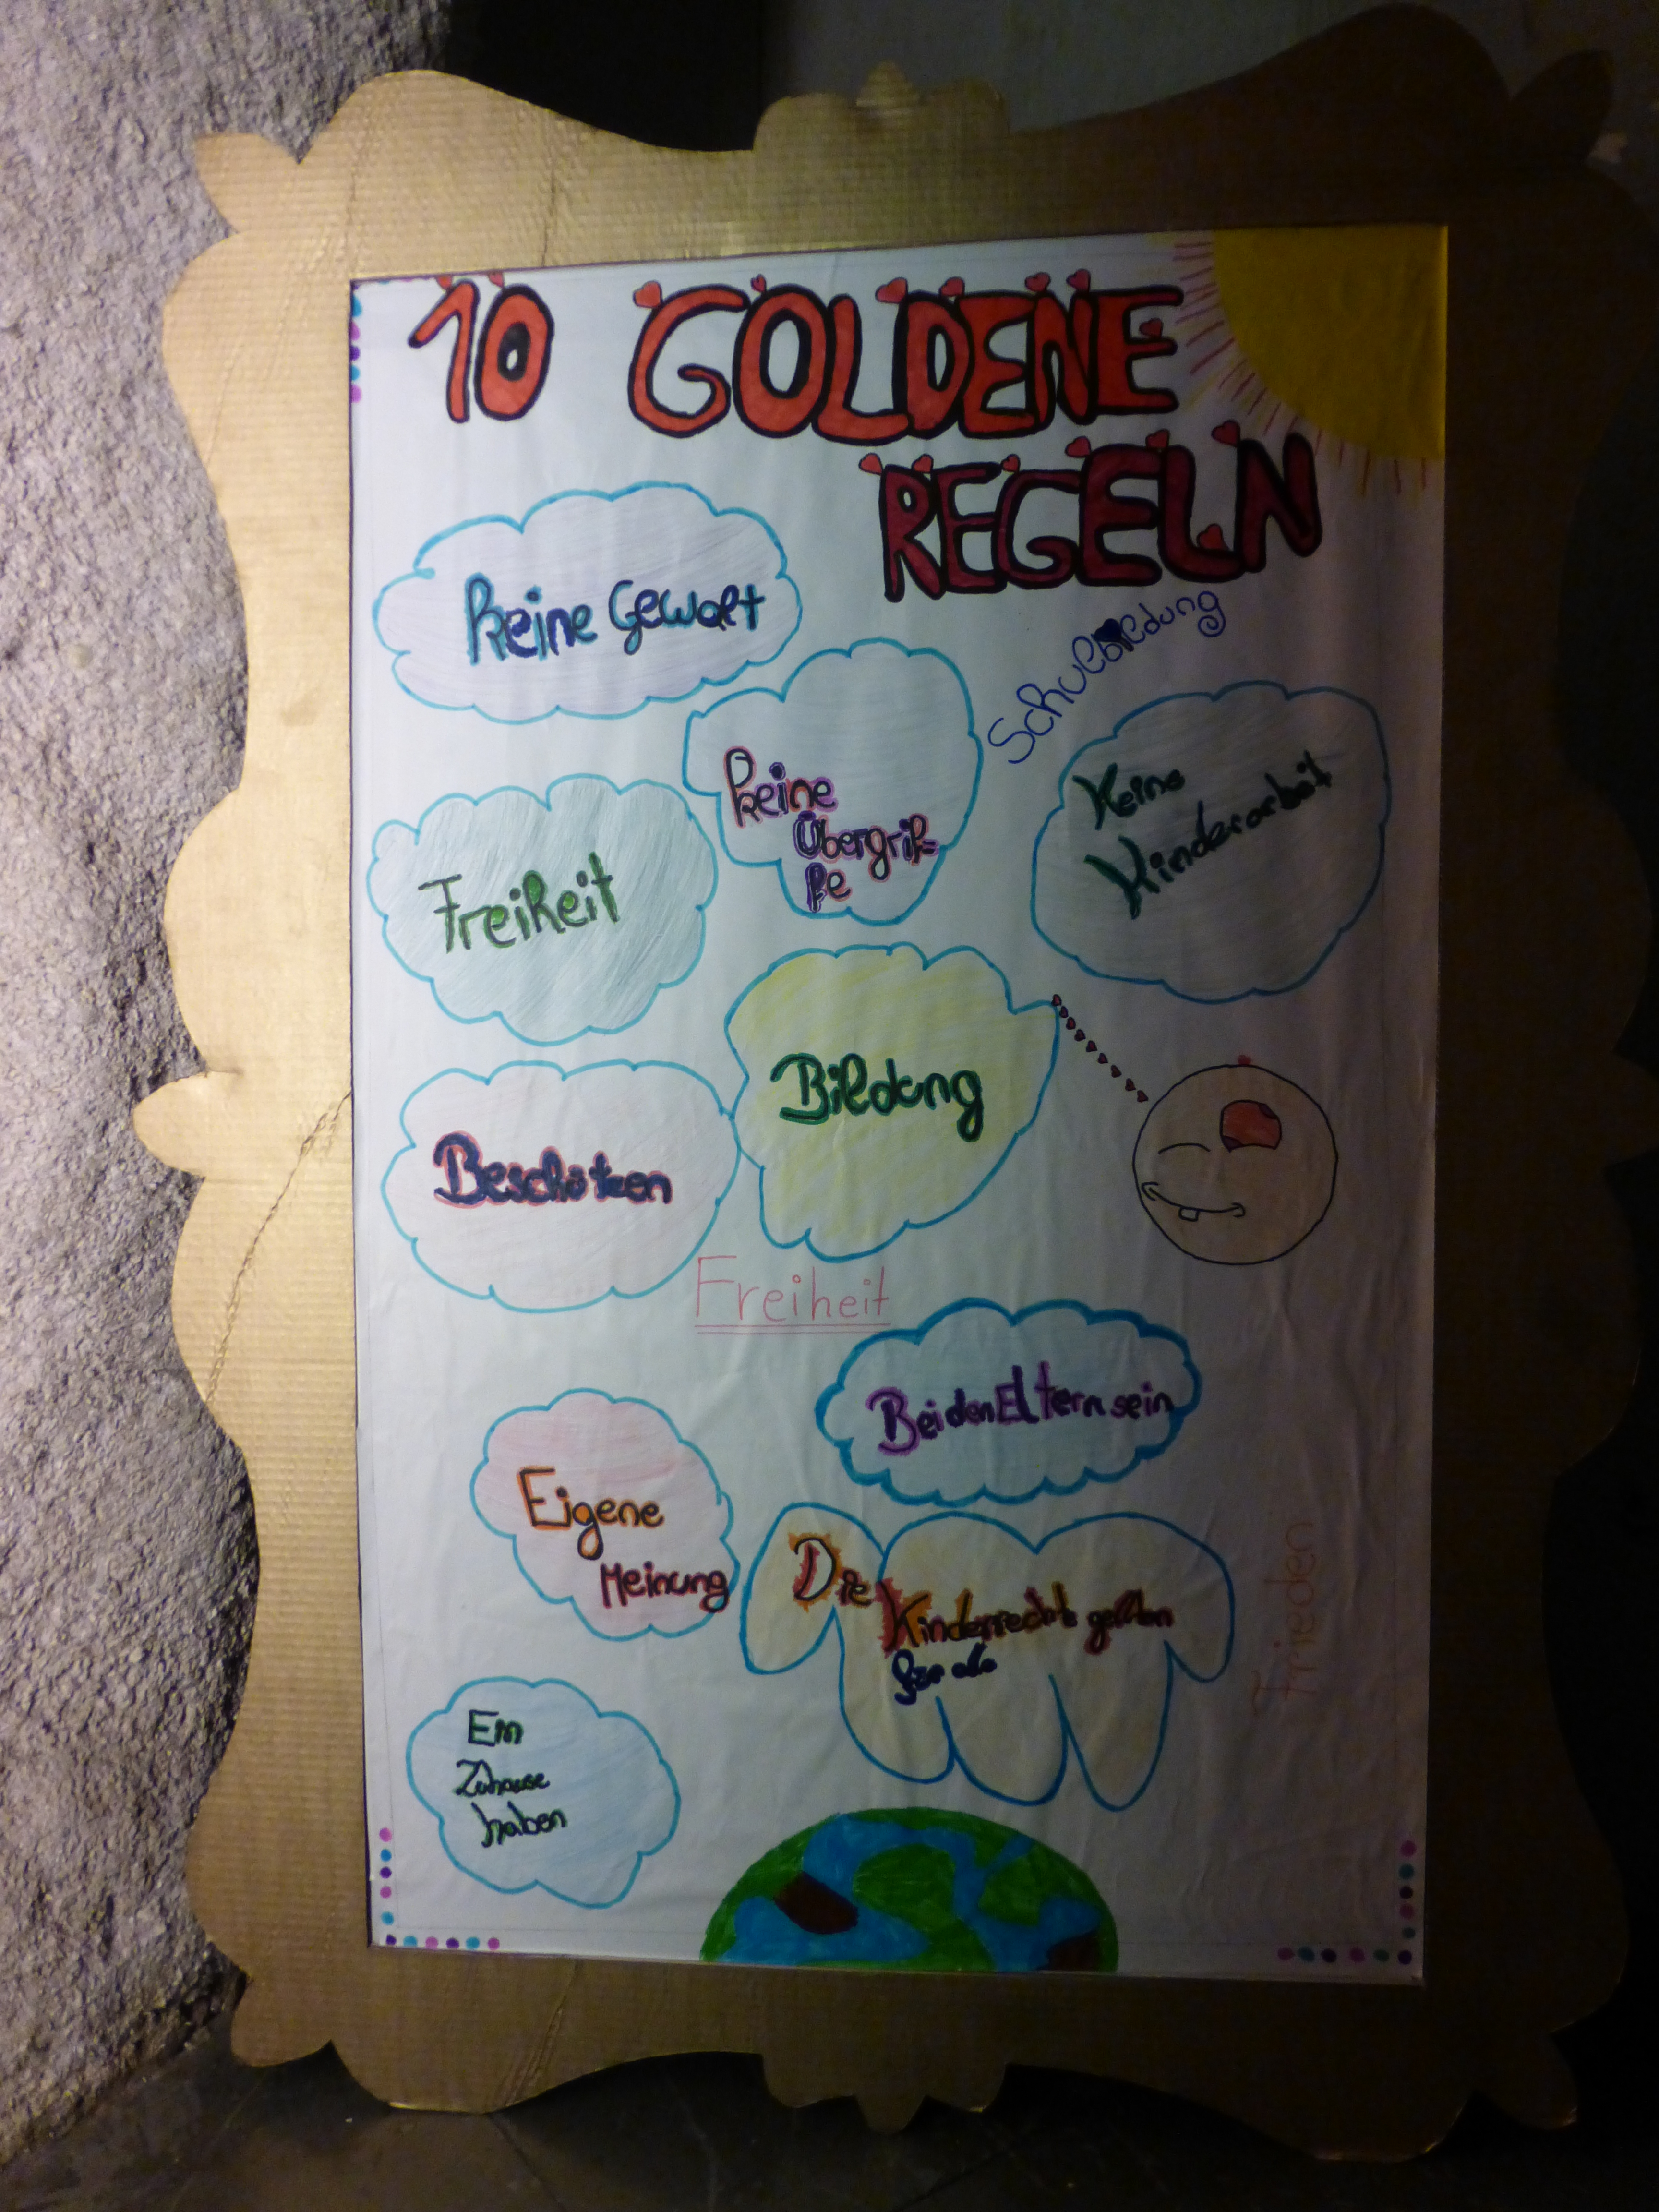 10 GOLDENE
REGELN
Keine Gewalt
Schulbildung
Keine
Übergrif=
fe
Keine
Kinderarbeit
Freiheit
Bildung
Beschützen
Freiheit
Bei den Eltern sein
Eigene
Meinung
Die
Kinderrechte gelten
für alle
Frieden
Ein
Zuhause
haben